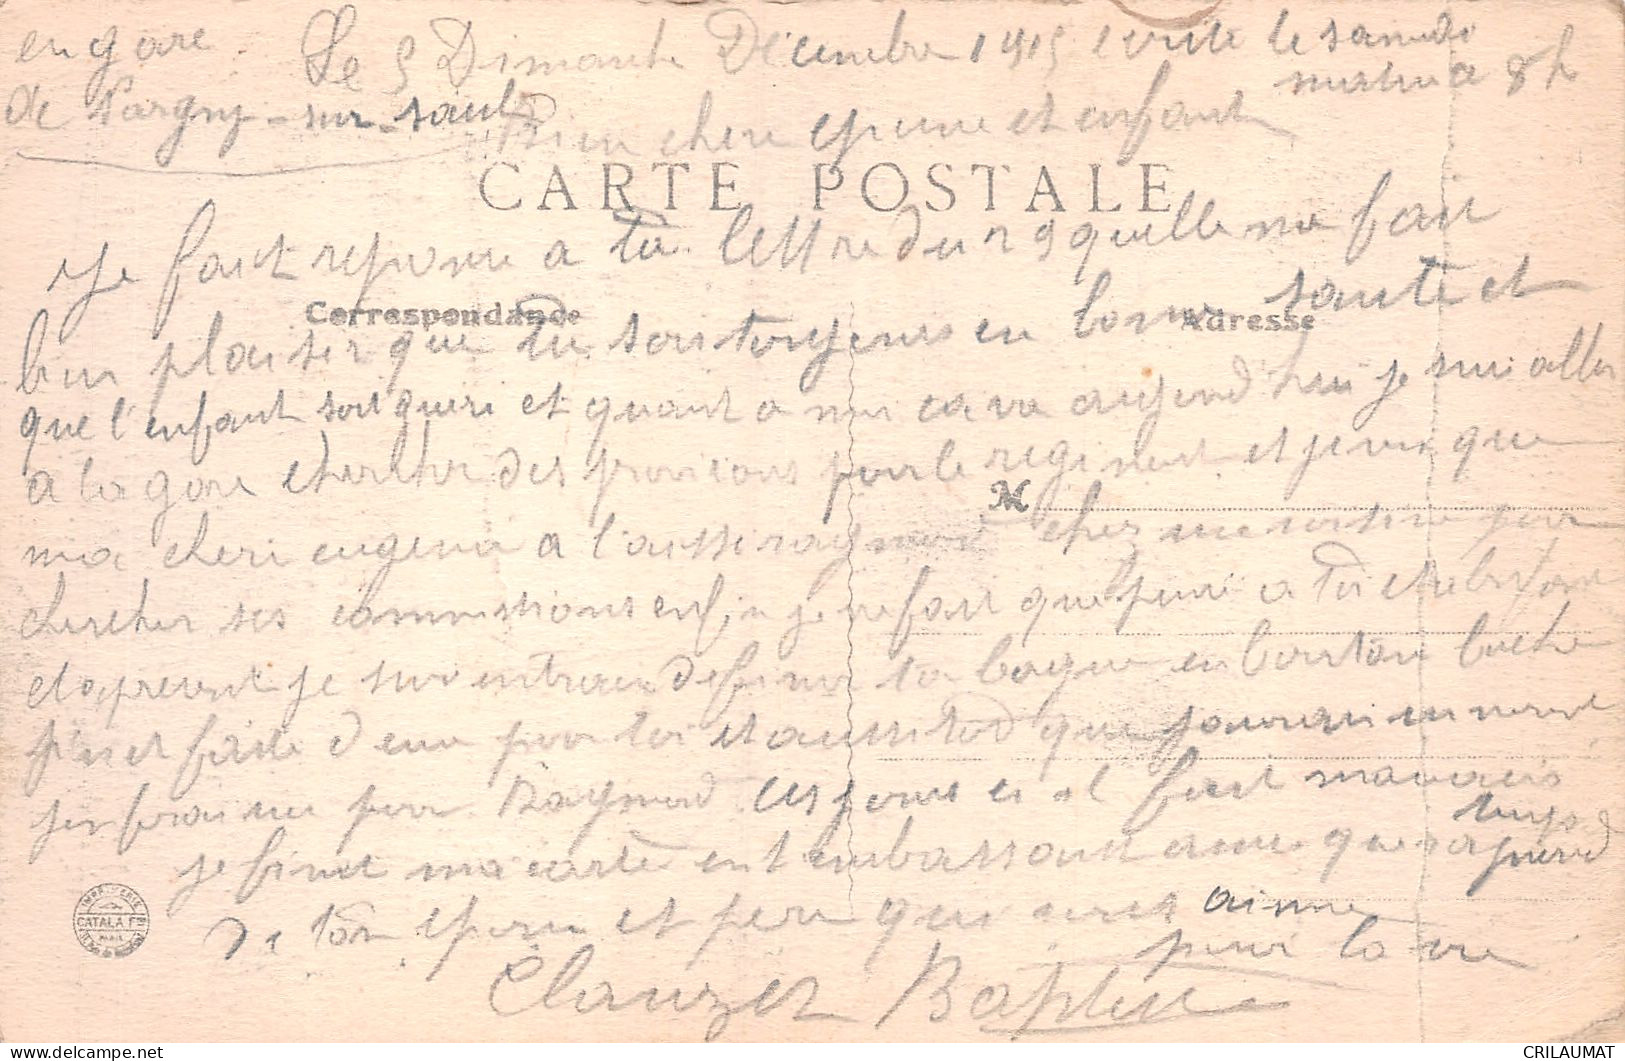 en gare Le 5 Dimanche Décembre 1915 écrite le samedi
de Pargny-sur-saulx matin a 8h
Bien chere epouse et enfant
CARTE POSTALE
Je fait reponse a ta lettre du 29 quelle me fait
Correspondance
Adresse
bien plaisir que tu soit toujours en bonne santé et
que l'enfant soit gueri et quant a moi ca va aujourd'hui je sui aller
a la gare chercher des provisions pour le regiment et je vois que
M
ma cheri eugenie a l'aussi raymond chez une voisine pour
chercher ses commissions enfin je ne fait que pensé a toi et a l'enfant
et apresent je suis entrain de finir ta bague en
d'une pour toi et aussitod que j'aurais un moment
j'en ferai une pour Raymond ces jours ci il fait mauvais
temps
je finit ma carte en t embrassant ainsi que raymond
de ton epoux et pere qui vous aime
pour la vie
Clauzet Baptiste
IMPRIMERIE
CATALA Frs
PARIS
CRILAUMAT